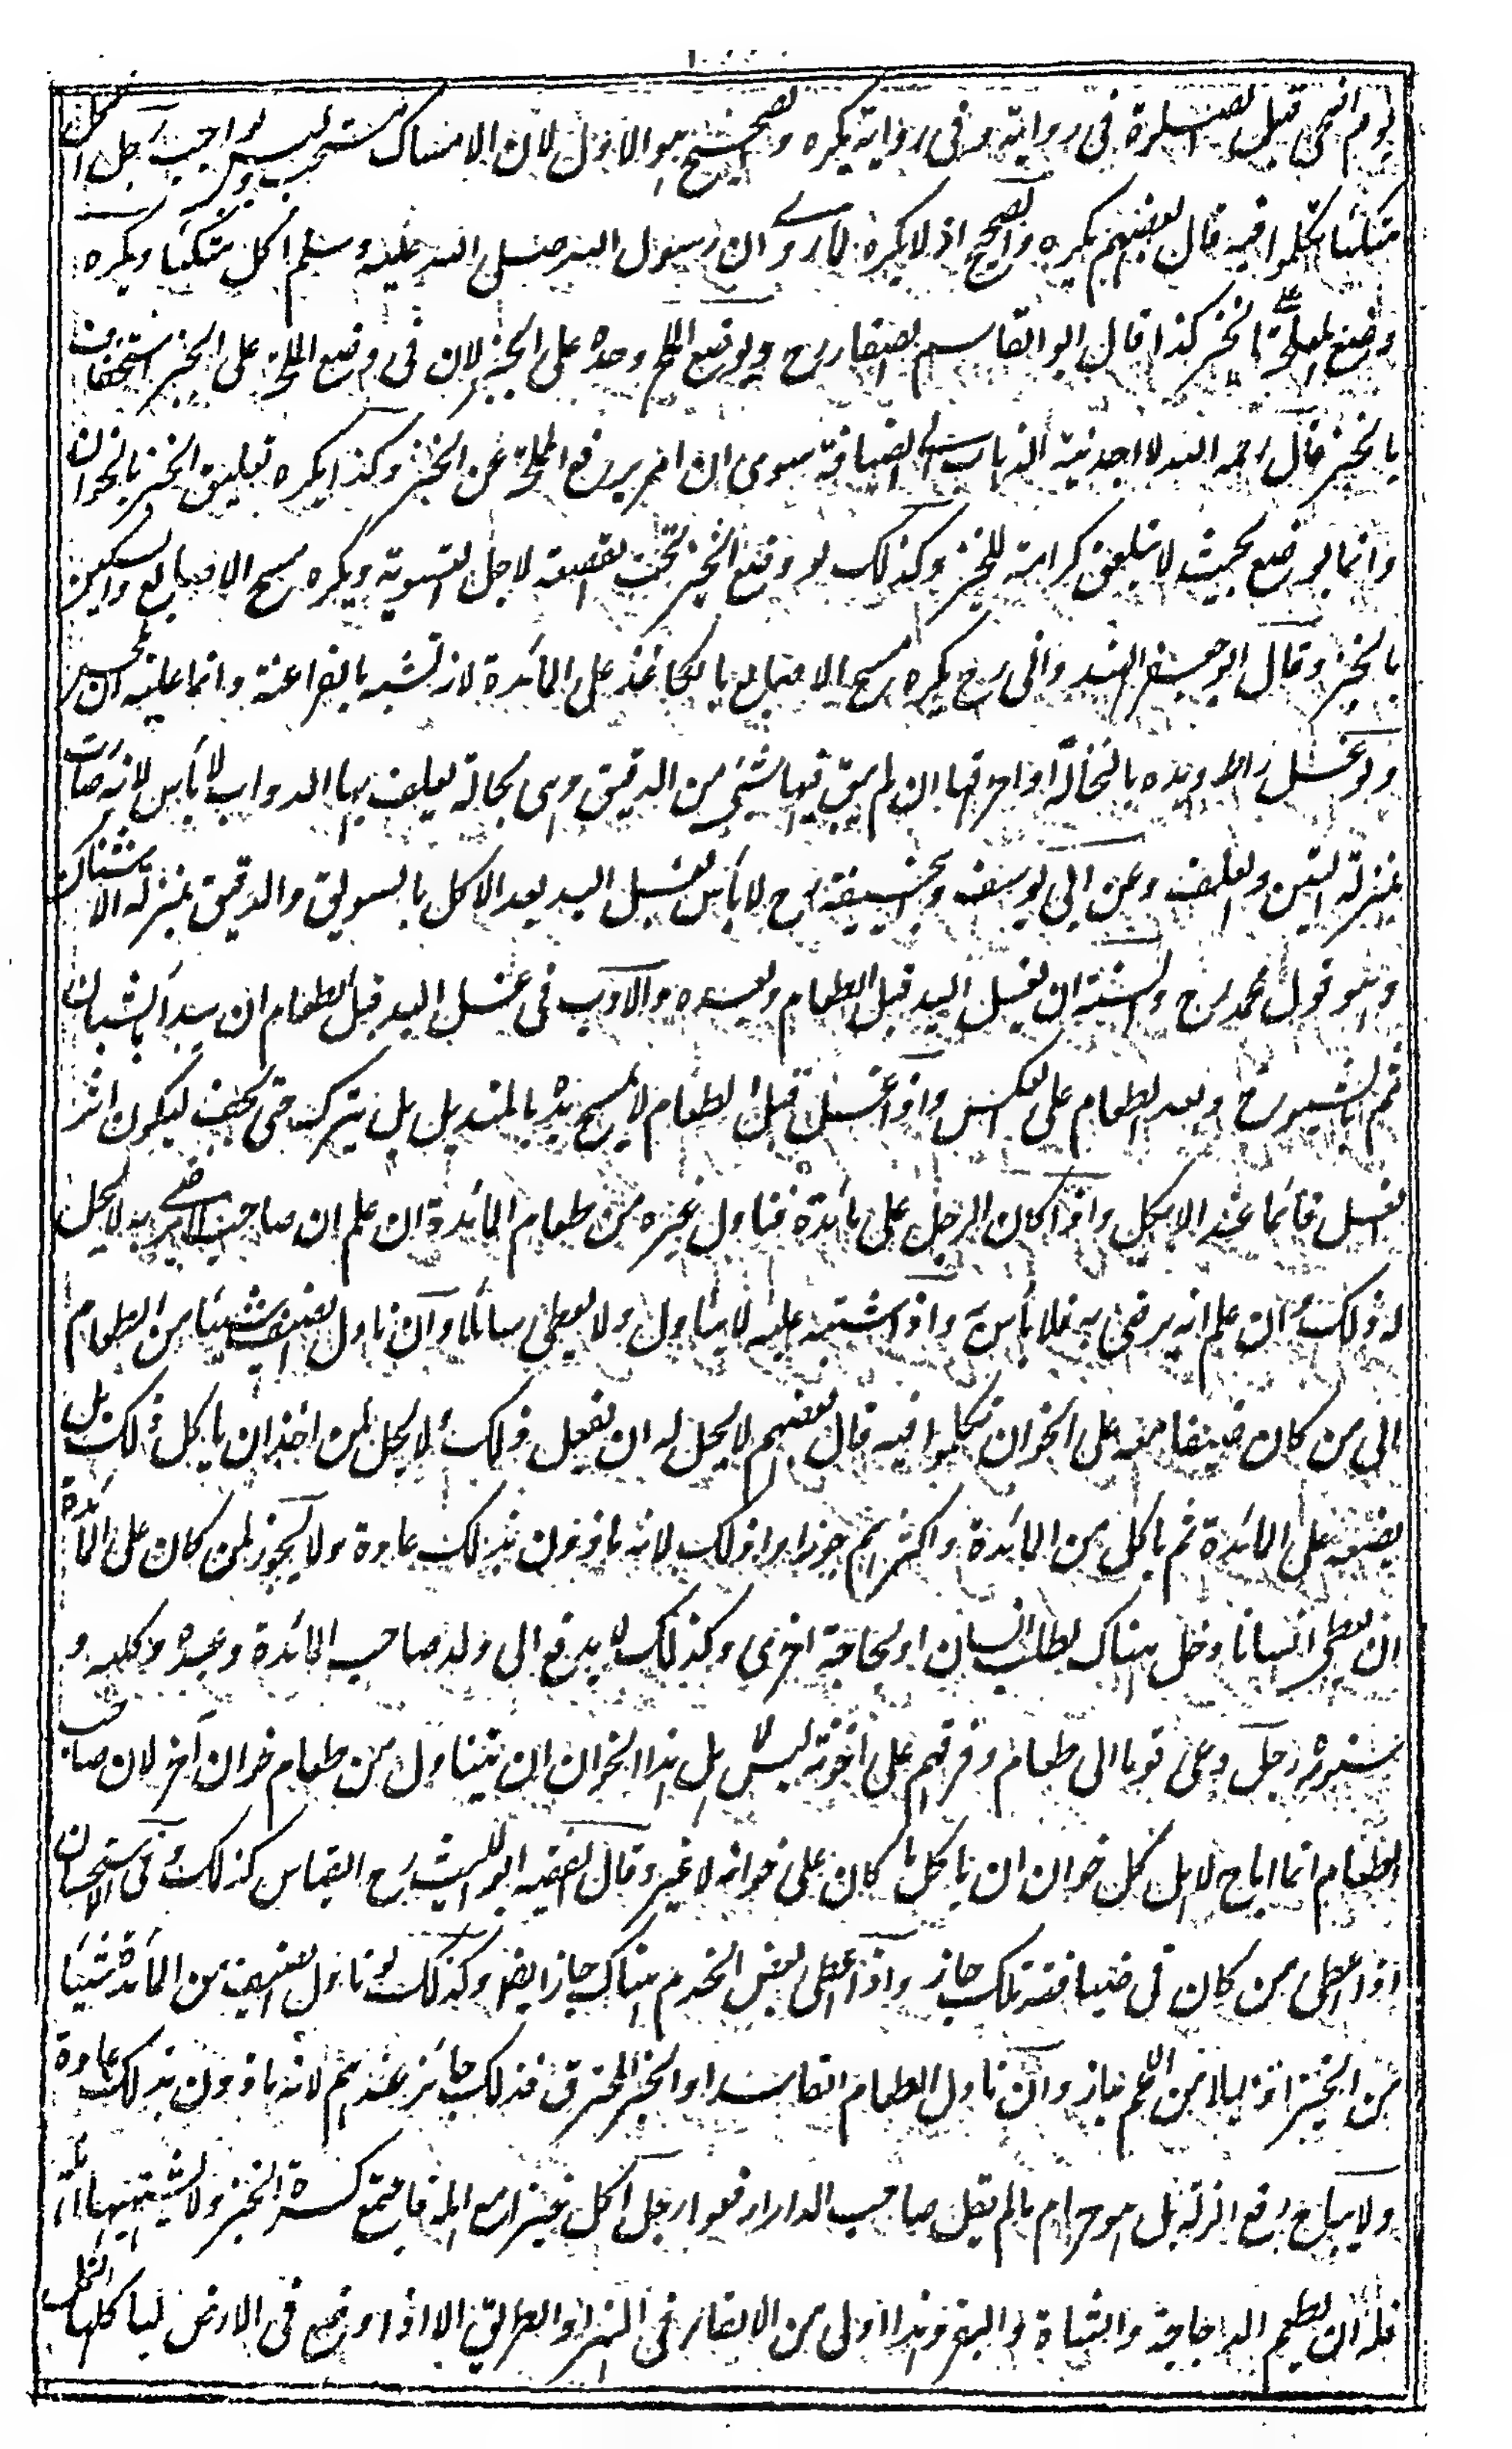 يوم اضحى قبل الصلوة فى رواية وفى رواية يكره والصحيح هو الاول لان الامساك مستحب وليس بواجب رجل اكل
متكئا تكلموا فيه قال بعضهم يكره والصحيح انه لا يكره لما روى ان رسول الله صلى الله عليه وسلم اكل متكئا ويكره
وضع المملحة على الخبز كذا قال ابو القاسم الصفار رح ويوضع الملح وحده على الخبز لان فى وضع المملحة على الخبز استخفاف
بالخبز قال رحمه الله لا اجد نية الذهاب الى الضيافة سوى ان امر برفع المملحة عن الخبز وكذا يكره تعليق الخبز بالخوان
وانما يوضع بحيث لا يتعلق كرامة للخبز وكذلك لو وضع الخبز تحت القصعة لاجل التسوية ويكره مسح الاصابع والسكين
بالخبز وقال ابو جعفر الهندوانى رح يكره مسح الاصابع بالكاغذ على المائدة لانه تشبه بالفراعنة وانما عليه ان
ولو غسل راسه ويده بالنخالة او احرقها ان لم يبق فيها شئ من الدقيق وهى نخالة يعلف بها الدواب لا بأس لانه صارت
بمنزلة التبن والعلف وعن ابى يوسف وابى حنيفة رح لا بأس بغسل اليد بعد الاكل بالسويق والدقيق بمنزلة الاشنان
وهو قول محمد رح والسنة ان يغسل اليد قبل الطعام وبعده والادب فى غسل اليد قبل الطعام ان يبدأ بالشبان
ثم بالشيوخ وبعد الطعام على العكس واذا غسل قبل الطعام لا يمسح يده بالمنديل بل يتركه حتى يجف ليكون اثر
الغسل قائما عند الاكل واذا كان الرجل على مائدة فناول غيره من طعام المائدة ان علم ان صاحبه لا يرضى به لا يحل
له ذلك وان علم انه يرضى به فلا بأس به واذا اشتبه عليه لا يناول ولا يعطى سائلا وان ناول الضيف شيئا من الطعام
الى من كان ضيفا معه على الخوان تكلموا فيه قال بعضهم لا يحل له ان يفعل ذلك ولا يحل لمن اخذ ان ياكل ذلك بل
يضعه على المائدة ثم ياكل من المائدة واكثرهم جوزوا ذلك لانه ماذون بذلك عادة ولا يجوز لمن كان على المائدة
ان يعطى انسانا دخل هناك لطلب انسان او لحاجة اخرى وكذلك لا يدفع الى ولد صاحب المائدة وعبده وكلبه و
سنوره رجل دعى قوما الى طعام وفرقهم على اخونة ليس لاهل هذا الخوان ان يتناول من طعام خوان آخر لان صاحب
الطعام انما اباح لاهل كل خوان ان ياكل ما كان على خوانه لا غير وقال الفقيه ابو الليث رح القياس كذلك وفى الاستحسان
اذا اعطى من كان فى ضيافته تلك جاز واذا اعطى بعض الخدم هناك جاز ايضا وكذلك لو ناول الضيف من المائدة شيئا
من الخبز او قليلا من اللحم جاز وان ناول الطعام الفاسد او الخبز المحترق فذلك جائز عندهم لانه ماذون بذلك عادة
ولا يباح رفع الزلة بل هو حرام ما لم يقل صاحب الدار ارفعوا رجل اكل خبزا مع اهله فاجتمع كسرة الخبز ولا يشتهيها اهله
فله ان يطعم الدجاجة والشاة والبقر وهذا اولى من الالقاء فى النهر او الطريق الا اذا وضع فى الارض لياكلها النمل